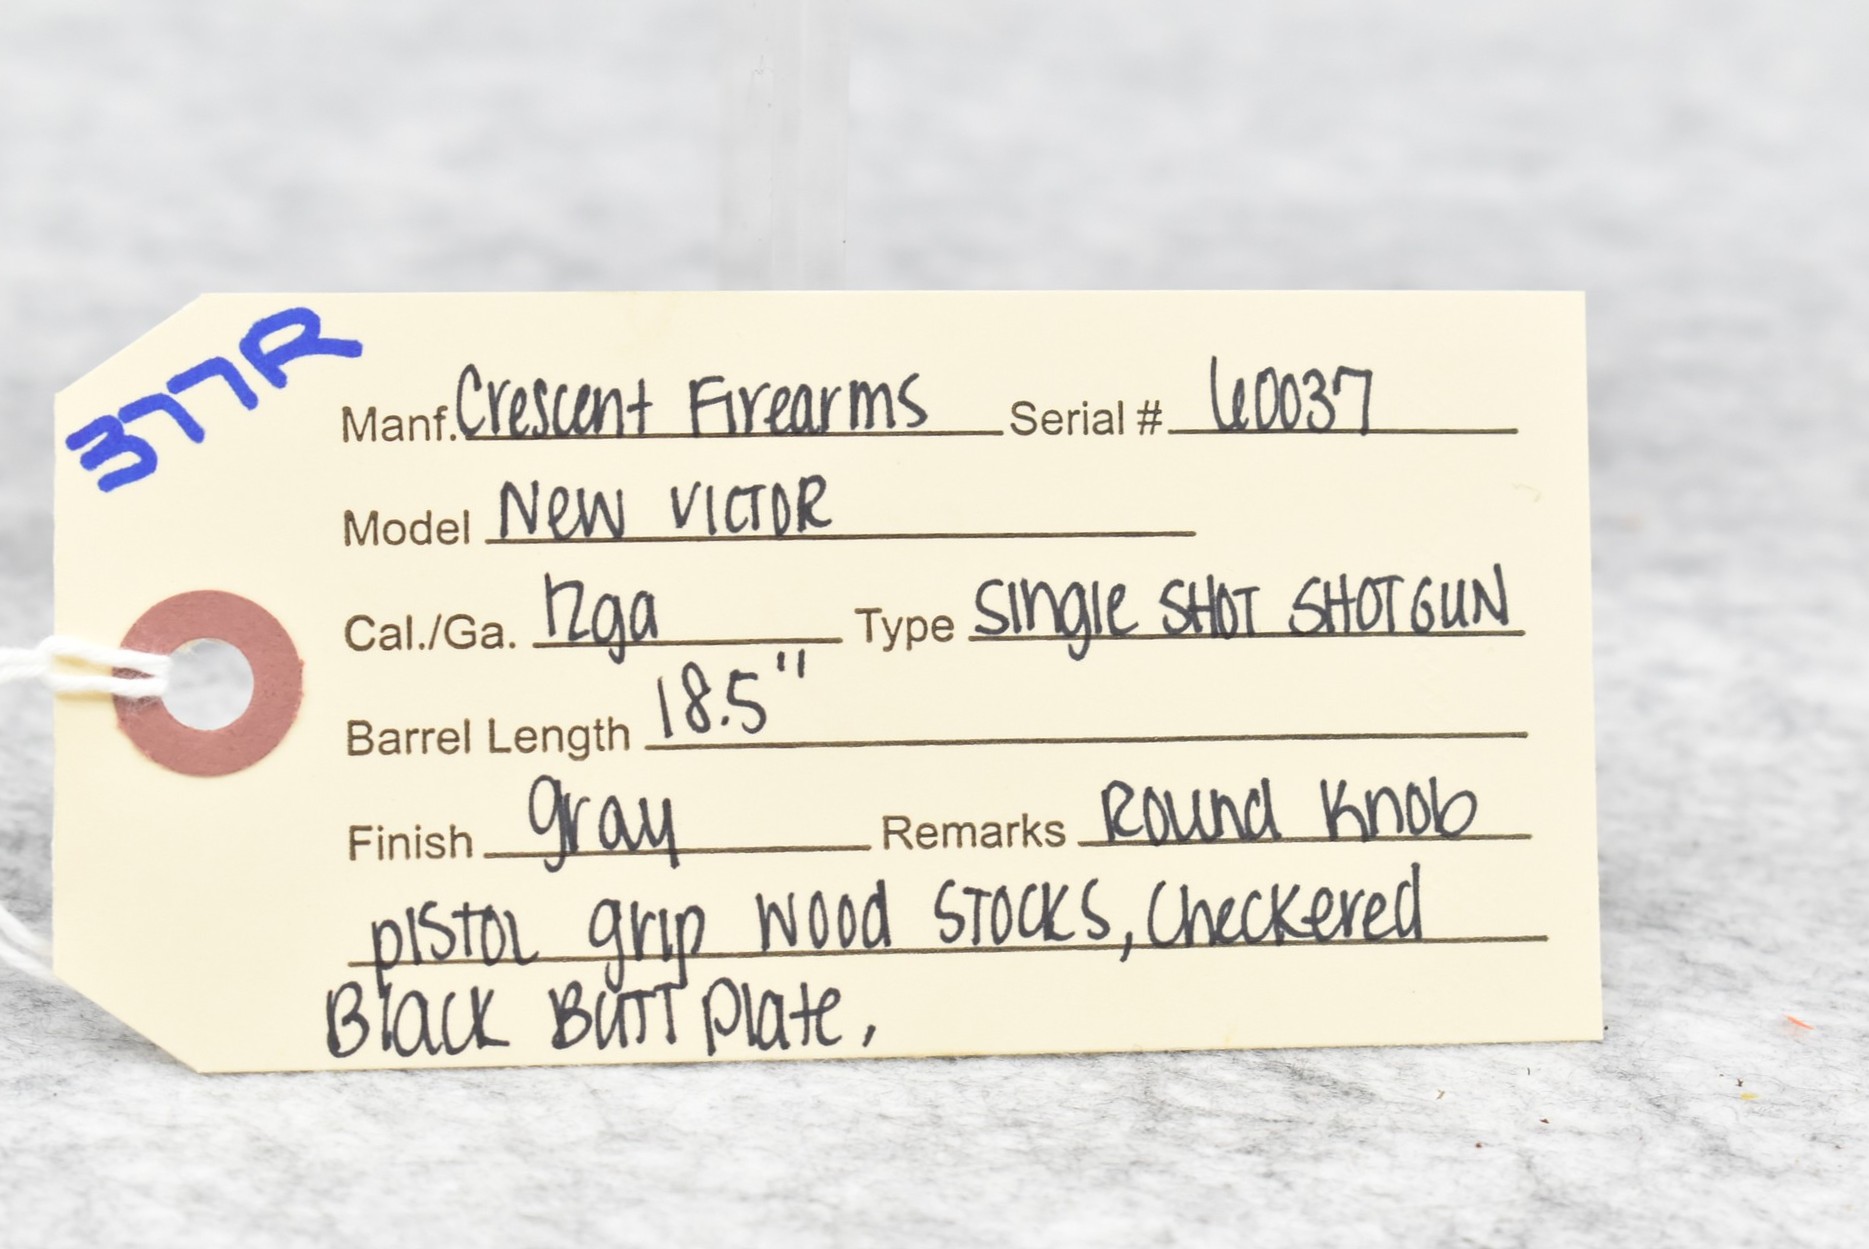 377R
Manf. Crescent Firearms Serial # 60037
Model New VICTOR
Cal./Ga. 12ga Type Single SHOT SHOTGUN
Barrel Length 18.5"
Finish gray Remarks Round Knob
pistol grip wood STOCKS, Checkered
Black Butt plate,